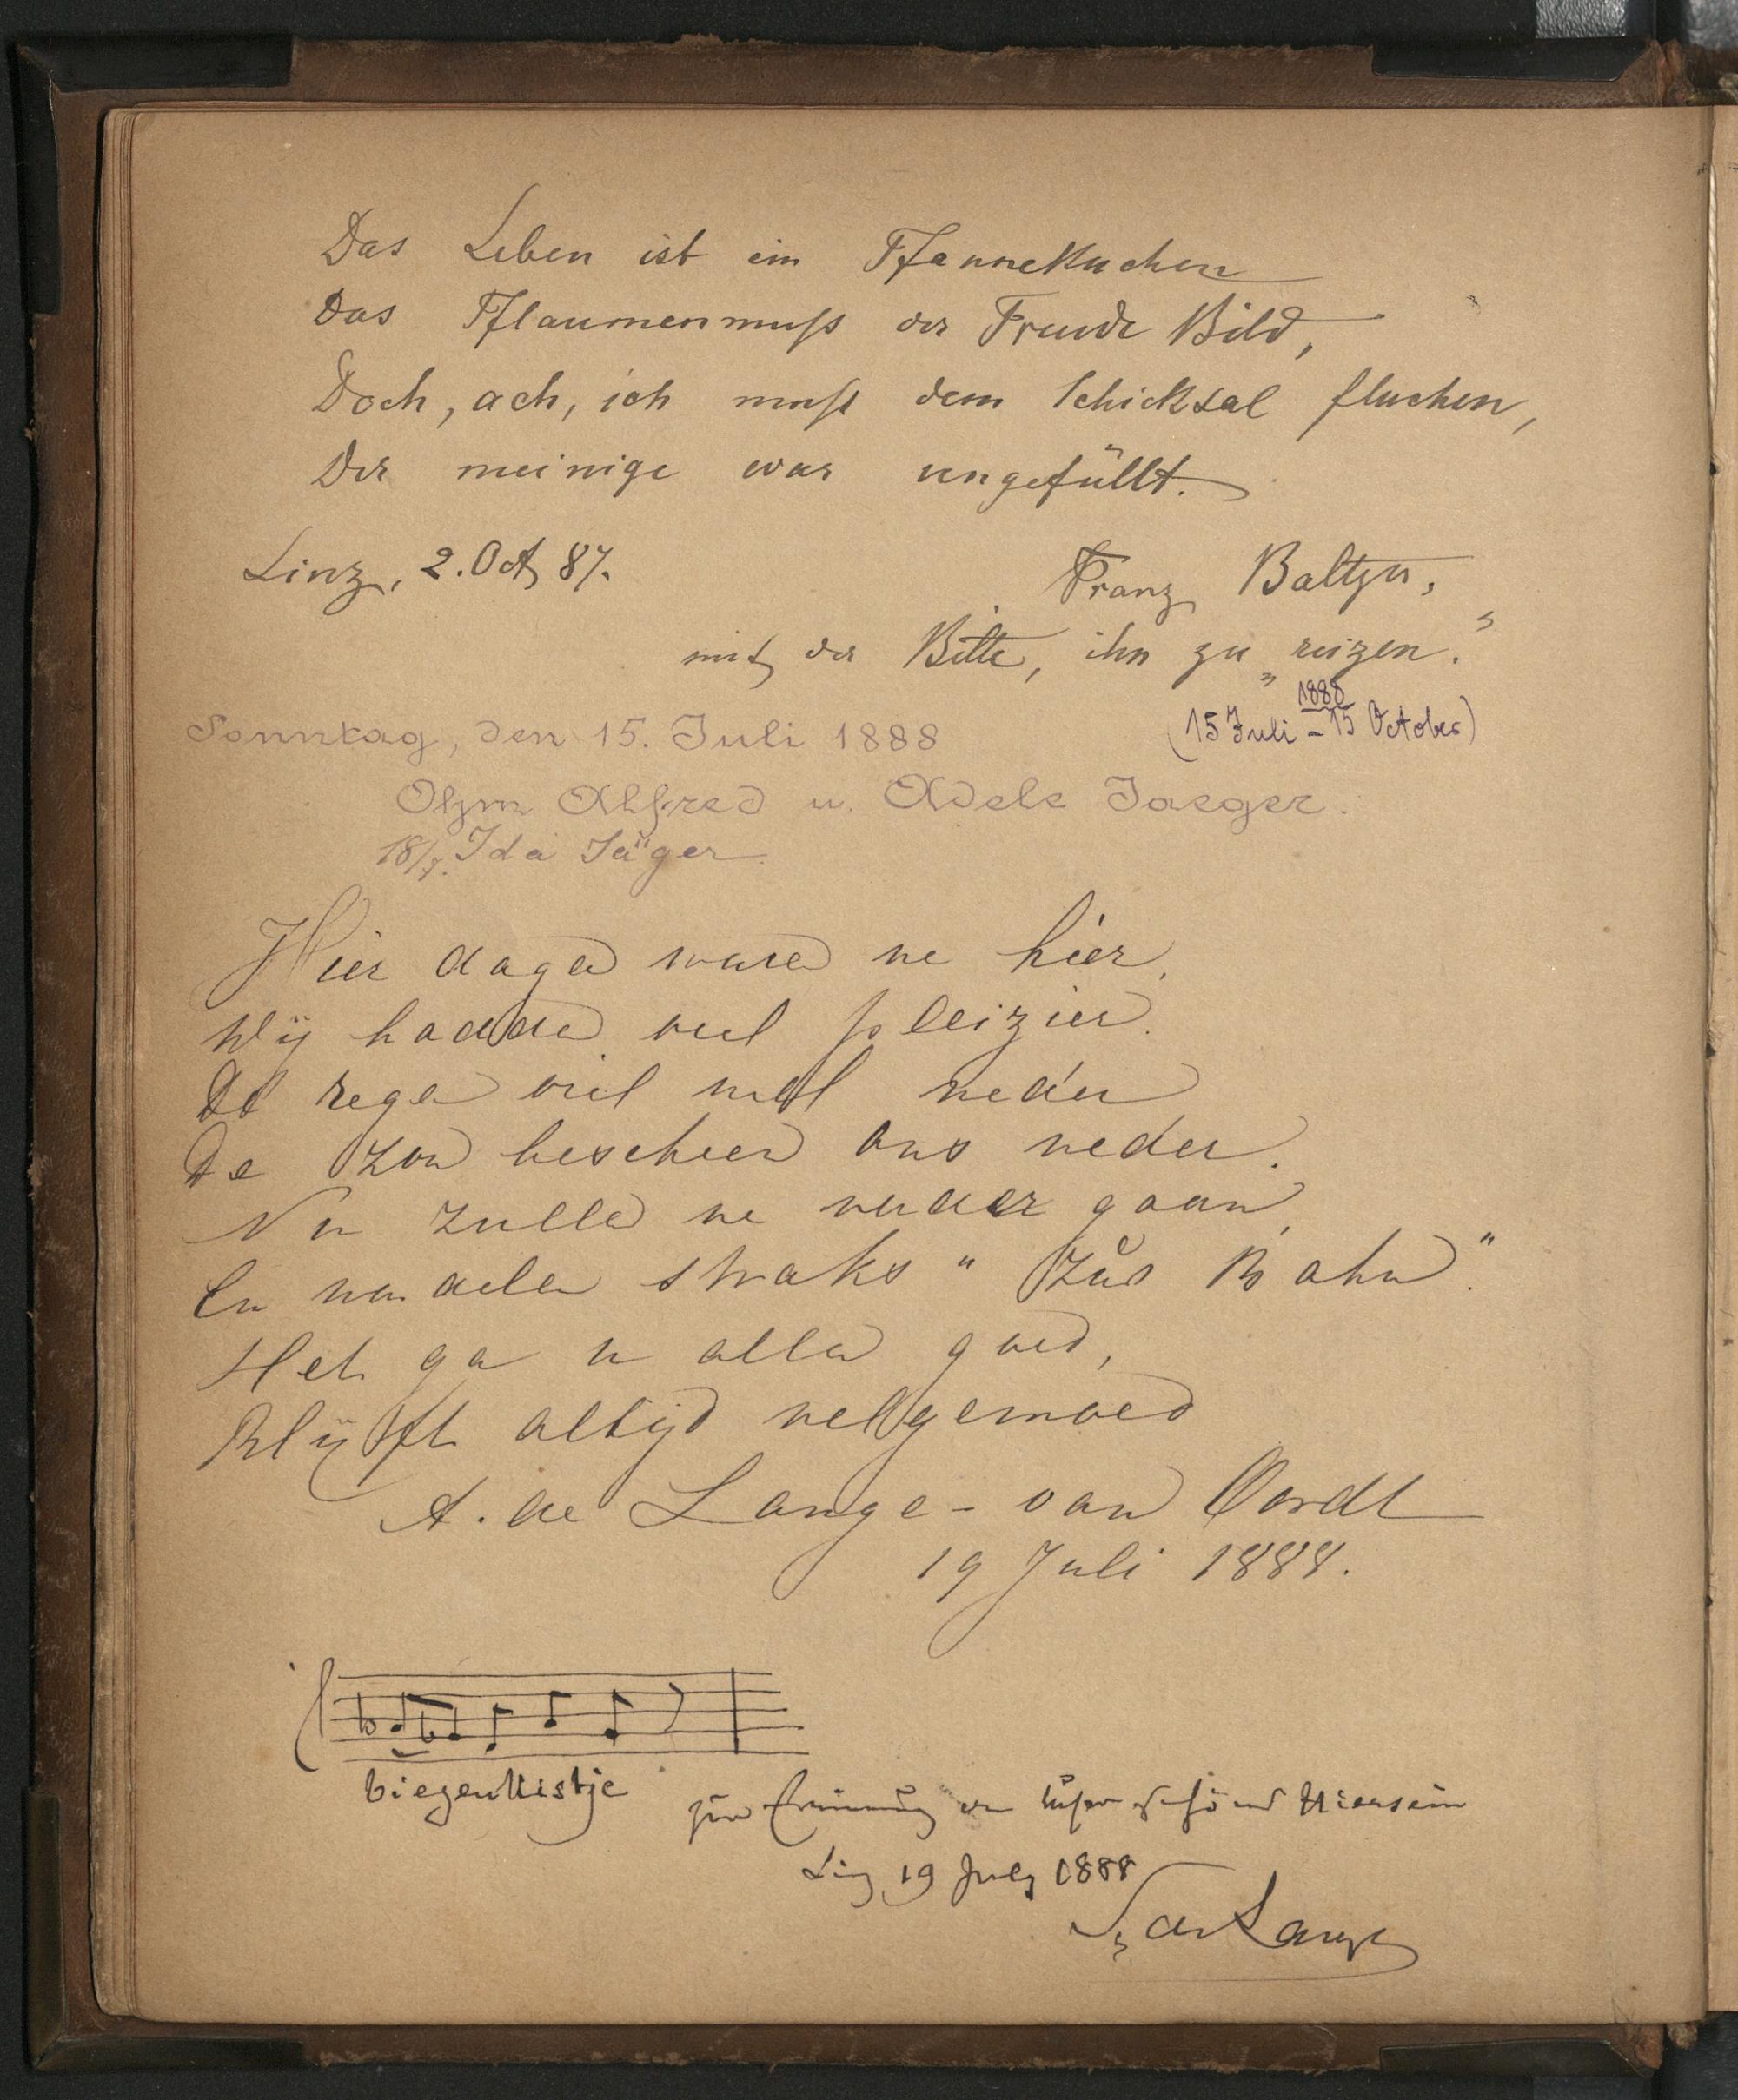 Das Leben ist ein Pfannekuchen
Das Pflaumenmuß der Freude Bild,
Doch, ach, ich muß dem Schicksal fluchen,
Der meinige war ungefüllt.
Linz, 2. Oct 87.
Franz Baltzer,
mit der Bitte, ihn zu „reizen."
1888
(15 Juli - 15 October)
Sonntag, den 15. Juli 1888
Ohm Alfred u. Adele Jaeger.
18/7. Ida Jäger
Vier dagen waren we hier,
Wij hadden veel pleizier.
De regen viel wel neder
De zon bescheen ons weder.
Nu zullen we verder gaan,
En wandelen straks "Zur Bahn".
Het ga u allen goed,
Blijft altijd welgemoed
A. de Lange - van Oordt
19 Juli 1888.
biezenkistje
zur Erinnerung an unser schönes Hiersein
Linz 19 July 1888
S. de Lange